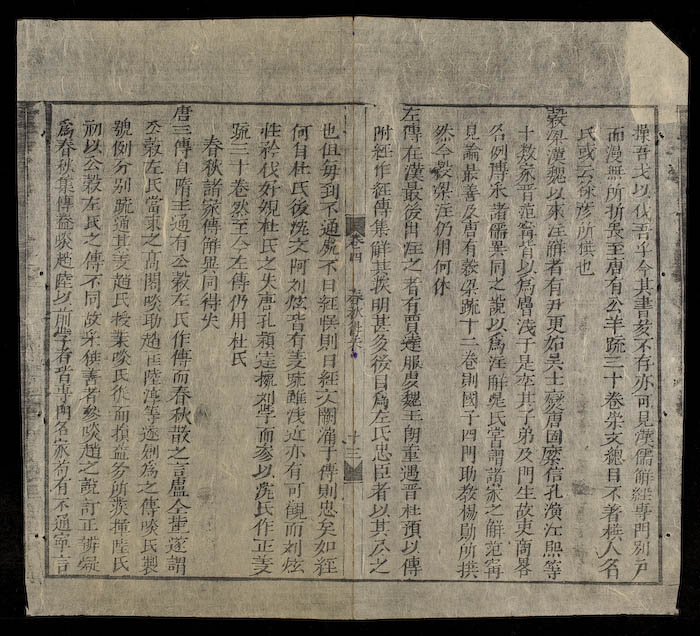 操吾戈以伐吾乎今其書茲不存亦可見漢儒解經專門別戶
而漫無所折衷至唐有公羊疏三十卷崇文總目不著撰人名
氏或云徐彥所撰也
穀梁漢魏以來注解者有尹更始吳士燮唐固麋信孔演江熙等
十數家晉范甯皆以為膚淺于是率其子弟及門生故吏商畧
名例博采諸儒異同之說以為注解晁氏嘗謂諸家之解范甯
見論最善及唐有穀梁疏十二卷則國子四門助教楊勛所撰
然今穀梁注仍用何休
左傳在漢最後出注之者有賈逵服虔魏王朗董遇晉杜預以傳
附經作經傳集解其發明甚多後目為左氏忠臣者以其心之
也但每到不通處不曰經悞則曰經文闕漏于傳則忠矣如經
何自杜氏後沈文阿刘炫皆有義疏雖淺近亦有可觀而刘炫
性矜伐好規杜氏之失唐孔穎達據刘學而參以沈氏作正義
疏三十卷然至今左傳仍用杜氏
春秋諸家傳解異同得失
唐三傳自隋王通有公穀左氏作傳而春秋散之言盧仝輩遂謂
公穀左氏當束之高閣啖助趙匡陸淳等遂剏為之傳啖氏製
號例分别疏通其義趙氏授業啖氏從而損益多所發揮陸氏
初以公穀左氏之傳不同故采獲善者參啖趙之說訂正辨疑
為春秋集傳蓋啖趙陸以前學者皆專門名家苟有不通寧言
卷四
春秋得失
十三